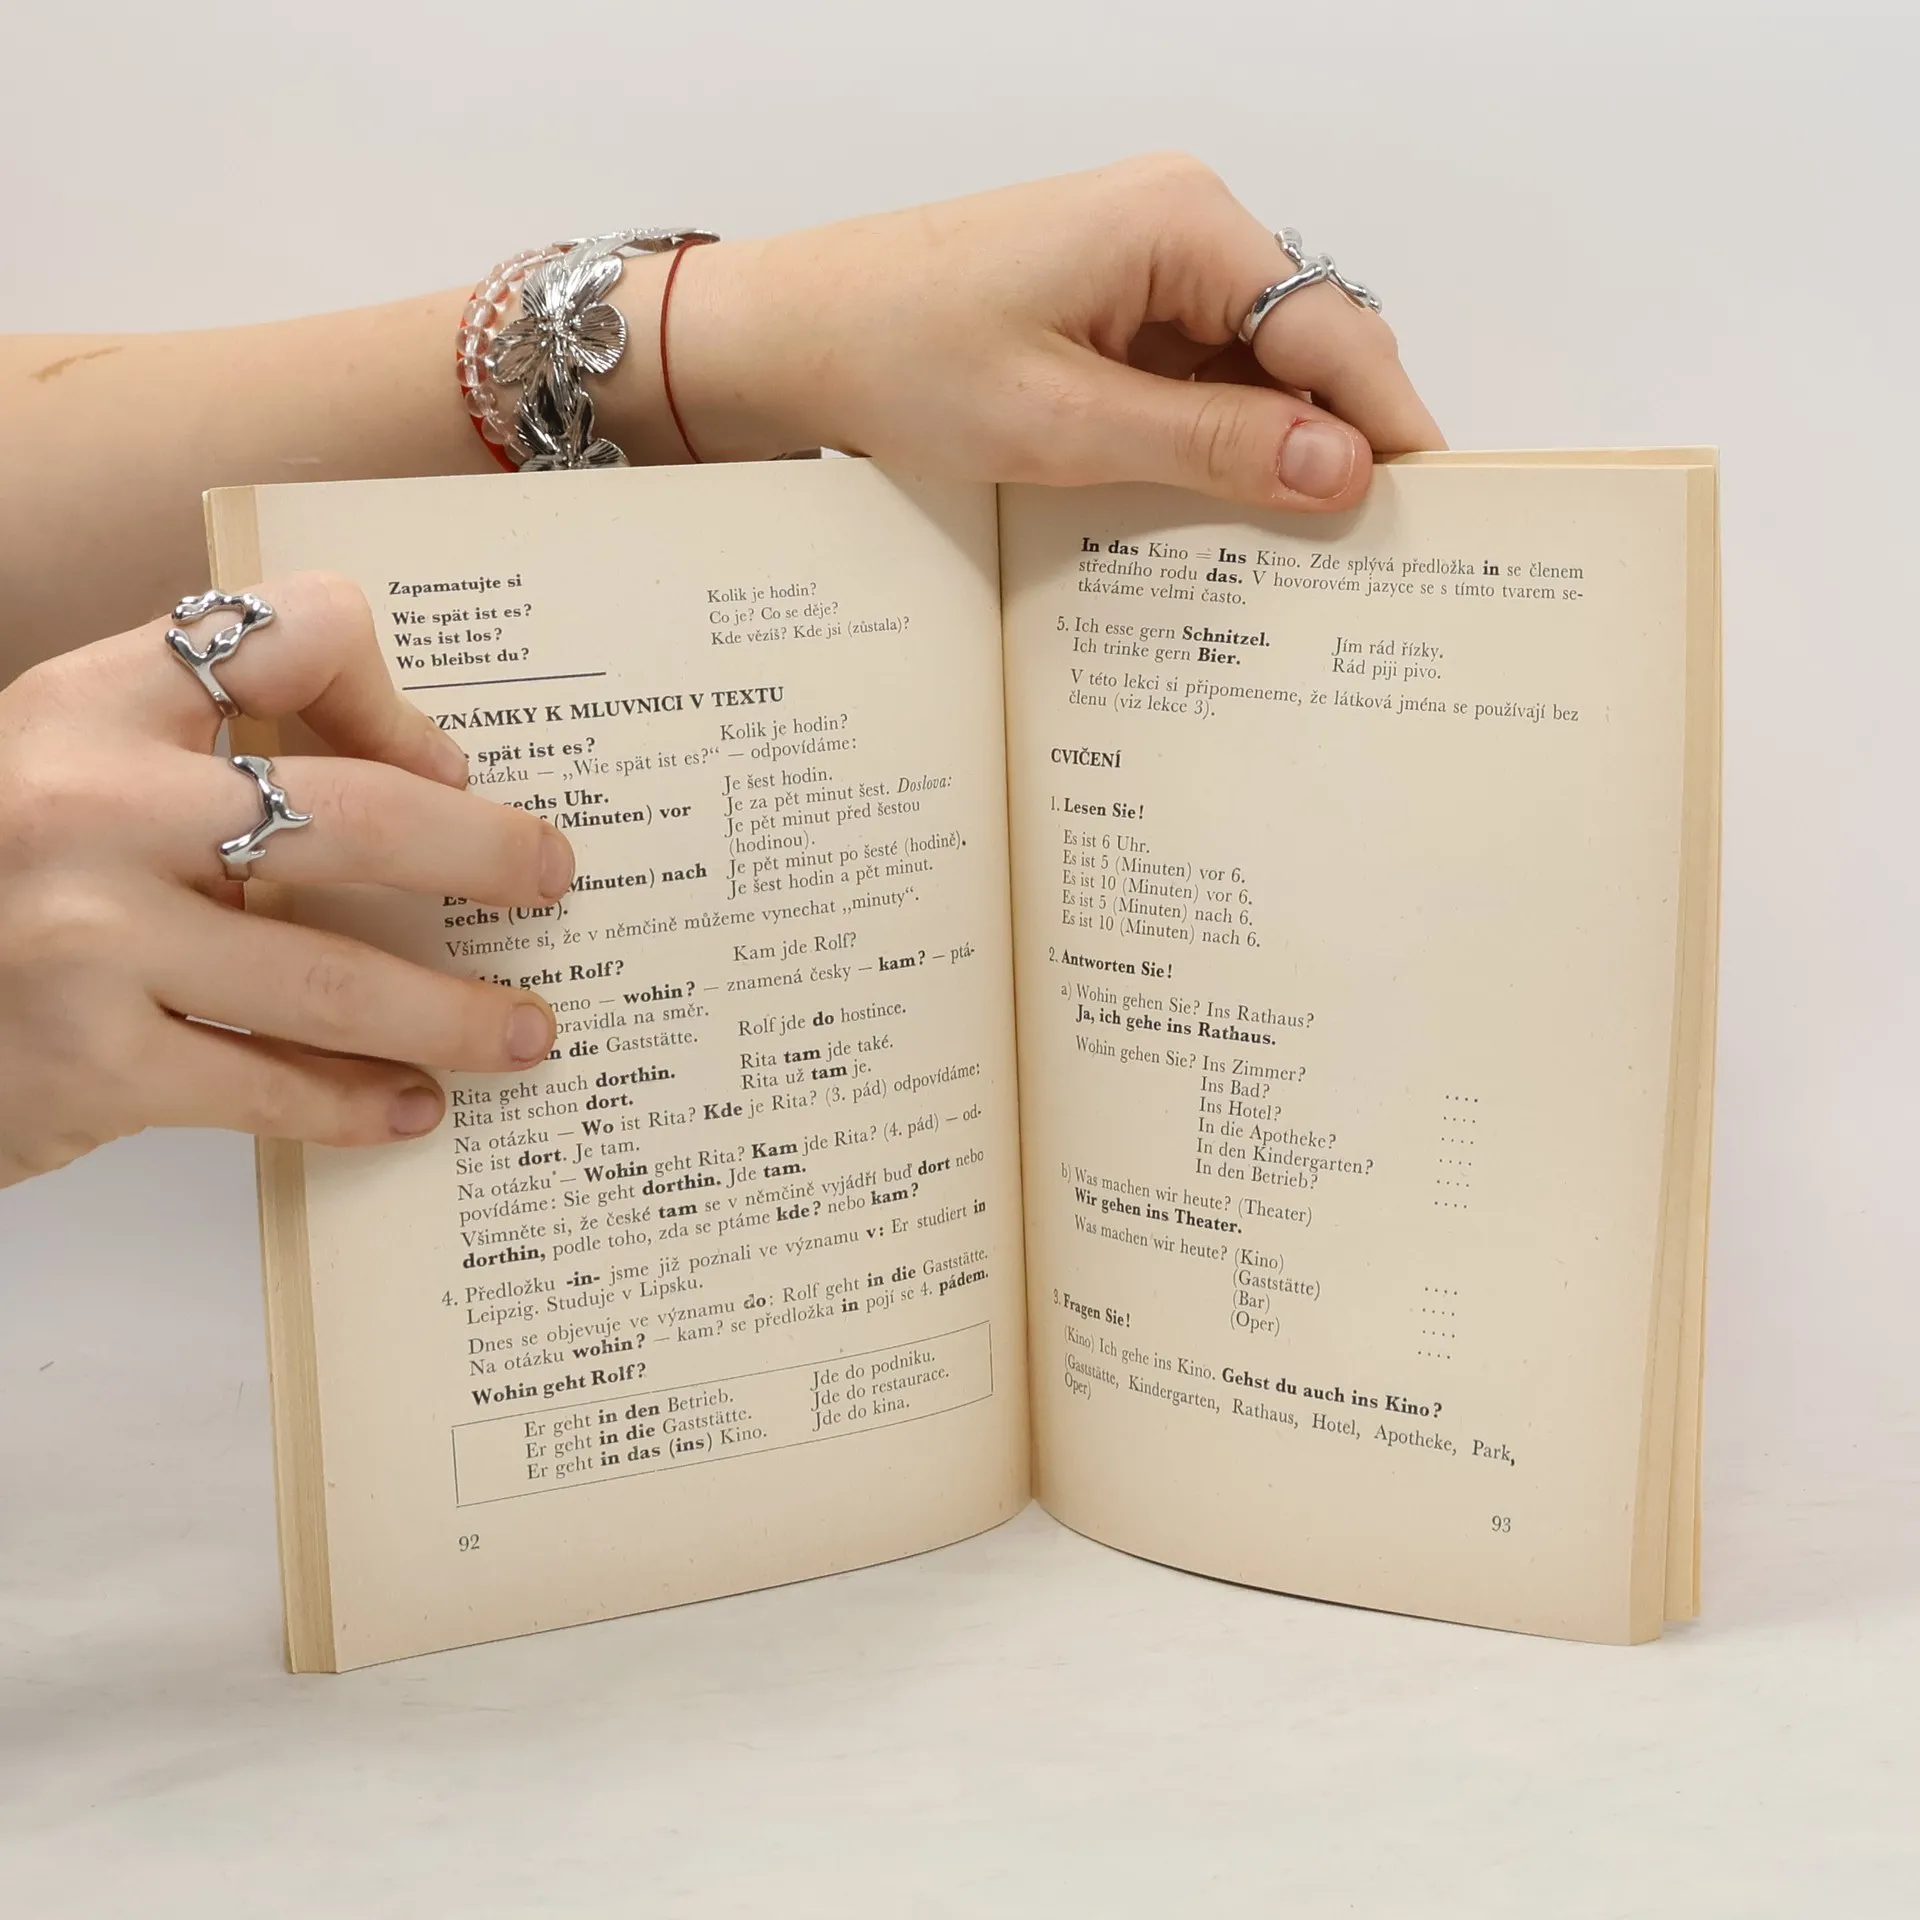 Zapamatujte si
Wie spät ist es? Kolik je hodin?
Was ist los? Co je? Co se děje?
Wo bleibst du? Kde vězíš? Kde jsi (zůstala)?
OZNÁMKY K MLUVNICI V TEXTU
spät ist es? Kolik je hodin?
otázku — „Wie spät ist es?“ — odpovídáme:
sechs Uhr. Je šest hodin.
(Minuten) vor Je za pět minut šest. Doslova:
Je pět minut před šestou
(hodinou).
Es (Minuten) nach Je pět minut po šesté (hodině).
sechs (Uhr). Je šest hodin a pět minut.
Všimněte si, že v němčině můžeme vynechat „minuty“.
geht Rolf? Kam jde Rolf?
— wohin? — znamená česky — kam? — ptá-
pravidla na směr.
in die Gaststätte. Rolf jde do hostince.
Rita geht auch dorthin. Rita tam jde také.
Rita ist schon dort. Rita už tam je.
Na otázku — Wo ist Rita? Kde je Rita? (3. pád) odpovídáme:
Sie ist dort. Je tam.
Na otázku — Wohin geht Rita? Kam jde Rita? (4. pád) — od-
povídáme: Sie geht dorthin. Jde tam.
Všimněte si, že české tam se v němčině vyjádří buď dort nebo
dorthin, podle toho, zda se ptáme kde? nebo kam?
4. Předložku -in- jsme již poznali ve významu v: Er studiert in
Leipzig. Studuje v Lipsku.
Dnes se objevuje ve významu do: Rolf geht in die Gaststätte.
Na otázku wohin? — kam? se předložka in pojí se 4. pádem.
Wohin geht Rolf?
Er geht in den Betrieb. Jde do podniku.
Er geht in die Gaststätte. Jde do restaurace.
Er geht in das (ins) Kino. Jde do kina.
92
In das Kino = Ins Kino. Zde splývá předložka in se členem
středního rodu das. V hovorovém jazyce se s tímto tvarem se-
tkáváme velmi často.
5. Ich esse gern Schnitzel. Jím rád řízky.
Ich trinke gern Bier. Rád piji pivo.
V této lekci si připomeneme, že látková jména se používají bez
členu (viz lekce 3).
CVIČENÍ
1. Lesen Sie!
Es ist 6 Uhr.
Es ist 5 (Minuten) vor 6.
Es ist 10 (Minuten) vor 6.
Es ist 5 (Minuten) nach 6.
Es ist 10 (Minuten) nach 6.
2. Antworten Sie!
a) Wohin gehen Sie? Ins Rathaus?
Ja, ich gehe ins Rathaus.
Wohin gehen Sie? Ins Zimmer? ....
Ins Bad? ....
Ins Hotel? ....
In die Apotheke? ....
In den Kindergarten? ....
In den Betrieb? ....
b) Was machen wir heute? (Theater)
Wir gehen ins Theater.
Was machen wir heute? (Kino) ....
(Gaststätte) ....
(Bar) ....
(Oper) ....
3. Fragen Sie!
(Kino) Ich gehe ins Kino. Gehst du auch ins Kino?
(Gaststätte, Kindergarten, Rathaus, Hotel, Apotheke, Park,
Oper)
93